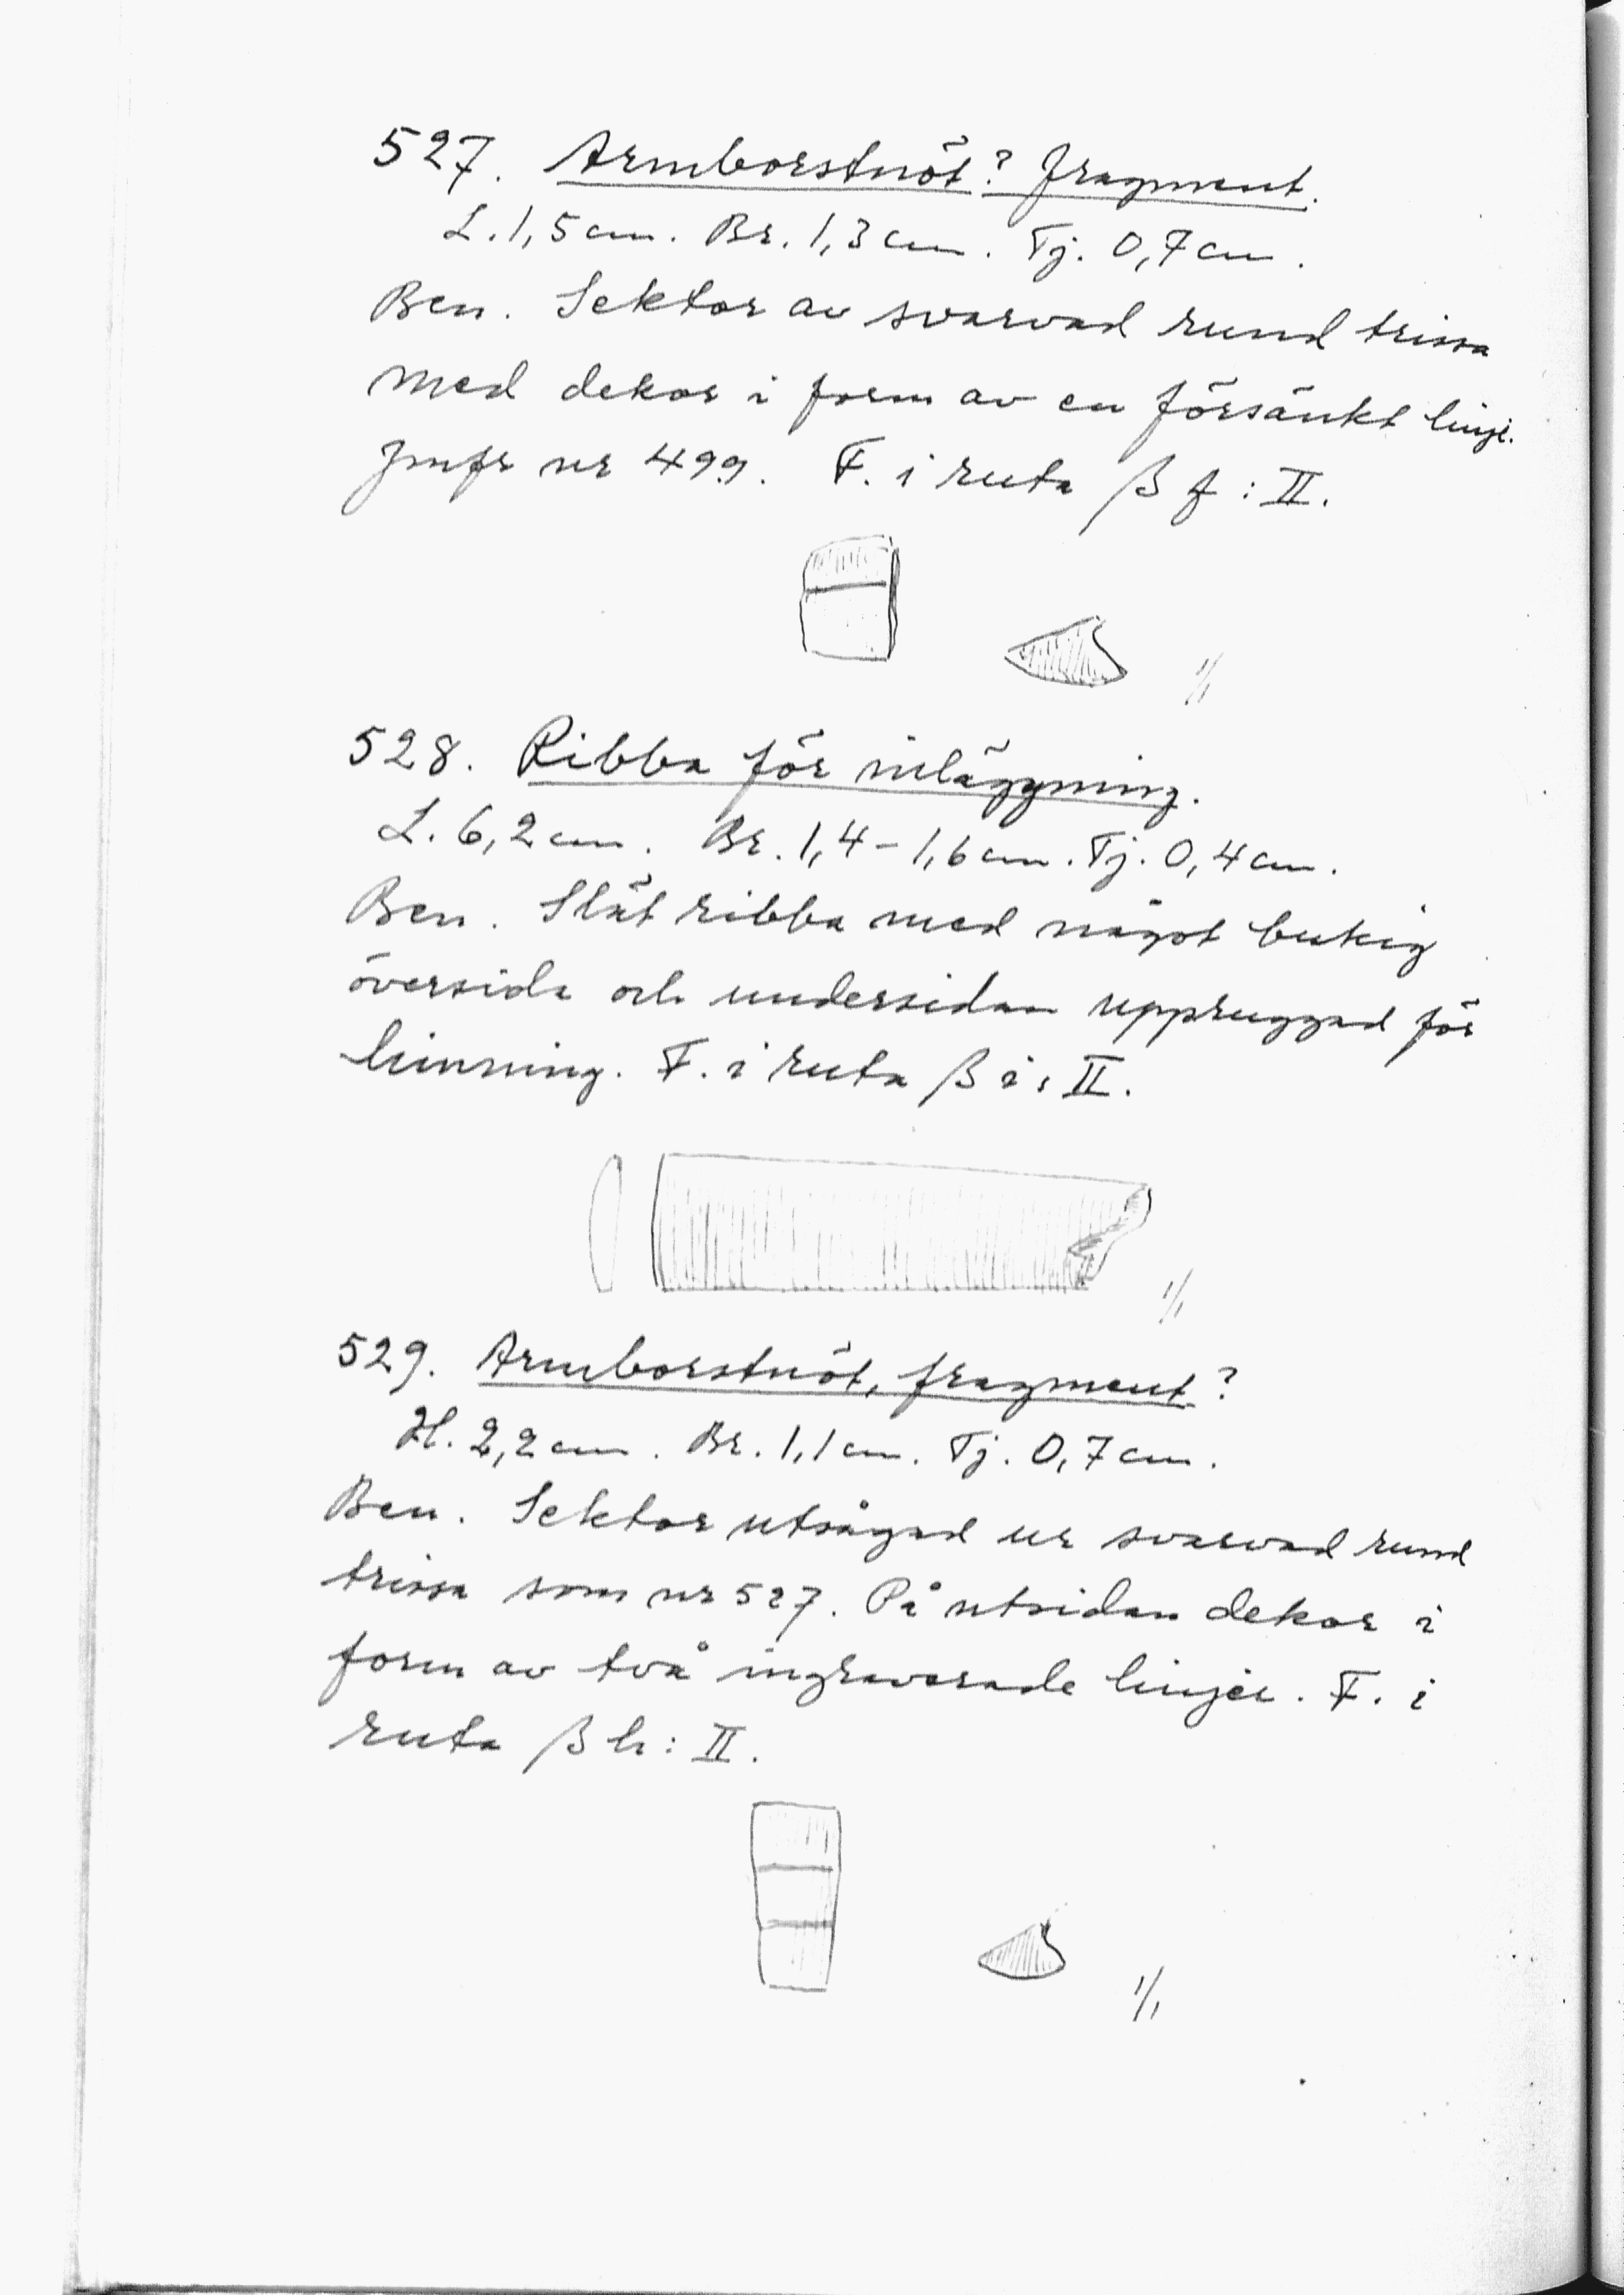 527. Armborstnöt? fragment.
L. 1,5 cm. Br. 1,3 cm. Tj. 0,7 cm.
Ben. Sektor av svarvad rund trissa
med dekor i form av en försänkt linje.
Jmfr nr 499. F. i ruta β f : II.
1/1
528. Ribba för inläggning.
L. 6,2 cm. Br. 1,4 - 1,6 cm. Tj. 0,4 cm.
Ben. Slät ribba med något bukig
översida och undersidan uppruggad för
limning. F. i ruta β i : II.
1/1
529. Armborstnöt, fragment?
H. 2,2 cm. Br. 1,1 cm. Tj. 0,7 cm.
Ben. Sektor utsågad ur svarvad rund
trissa som nr 527. På utsidan dekor i
form av två ingraverade linjer. F. i
ruta β h : II.
1/1